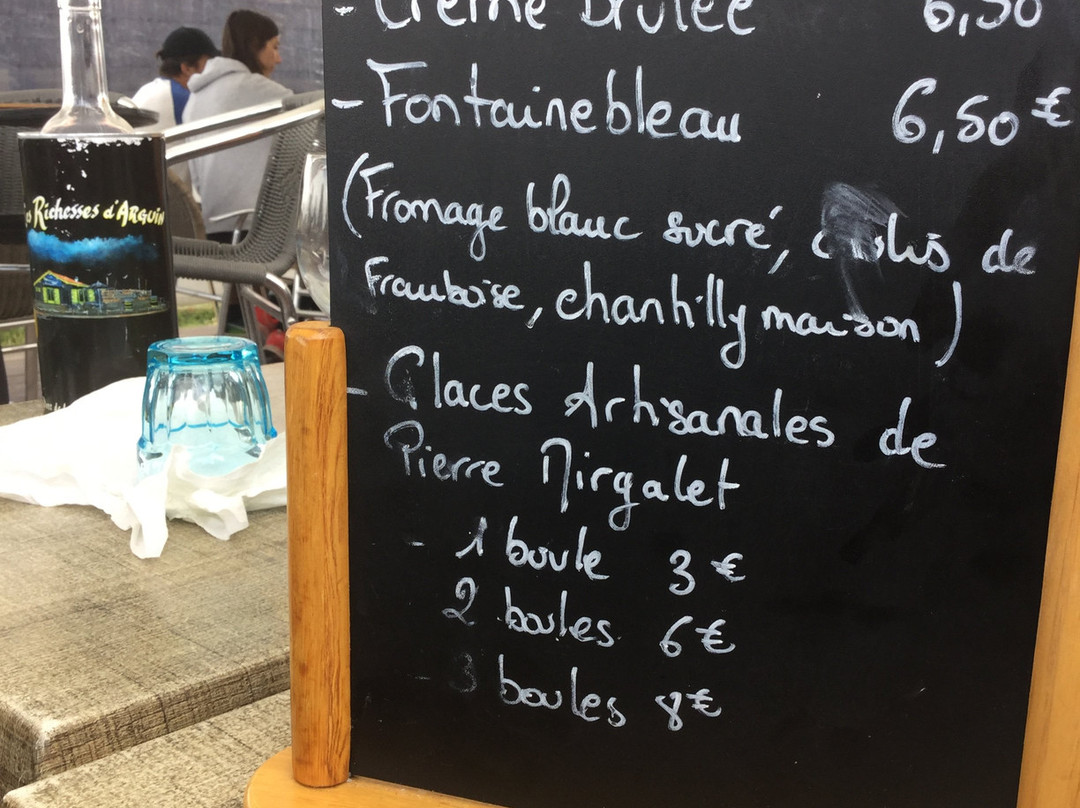 - Crème Brulée 6,50
- Fontainebleau 6,50€
(Fromage blanc sucré, coulis de
Framboise, chantilly maison)
- Glaces Artisanales de
Pierre Mirgalet
- 1 boule 3€
2 boules 6€
- 3 boules 8€
Richesses d'ARGUIN